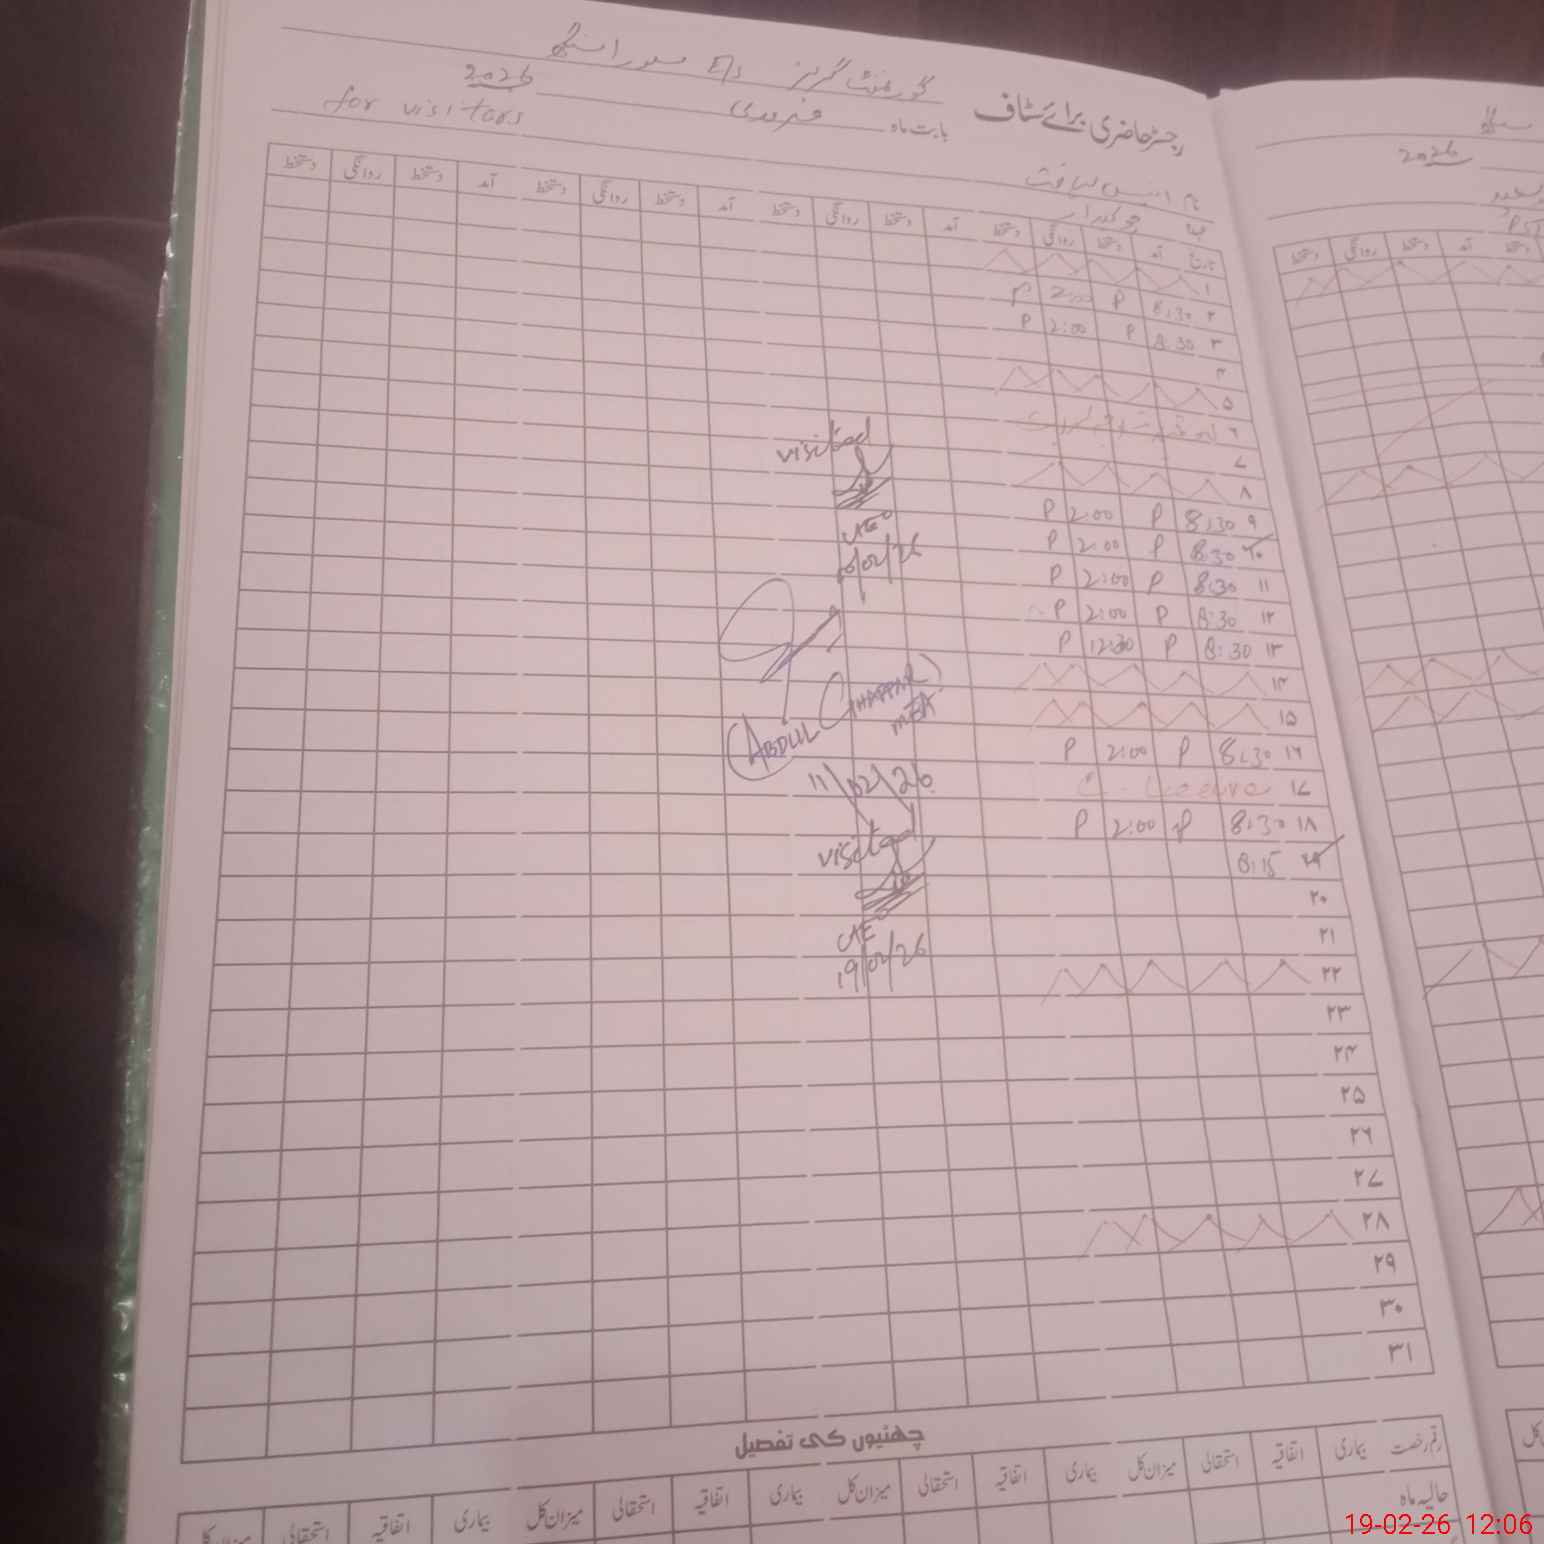 گورنمنٹ گرلز E/S
رجسٹر حاضری برائے سٹاف
بابت ماہ فروری 2026
for visitors
نام
چوکیدار
تاریخ آمد دستخط روانگی دستخط آمد دستخط روانگی دستخط آمد دستخط روانگی دستخط آمد دستخط روانگی دستخط
۱
۲ 8:30 P 2:00 P
۳ 8:30 P 2:00 P
۴
۵
۶
۷
۸
۹ 8:30 P 2:00 P
۱۰ 8:30 P 2:00 P
۱۱ 8:30 P 2:00 P
۱۲ 8:30 P 2:00 P
۱۳ 8:30 P 12:30 P
۱۴
۱۵
۱۶ 8:30 P 2:00 P
۱۷ Leave
۱۸ 8:30 P 2:00 P
۱۹ 8:15
۲۰
۲۱
۲۲
۲۳
۲۴
۲۵
۲۶
۲۷
۲۸
۲۹
۳۰
۳۱
visited
10/02/26
(ABDUL GHAFFAR)
MEA
11/02/26
visited
19/02/26
چھٹیوں کی تفصیل
رقم رخصت بیماری اتفاقیہ استحقاقی میزان کل بیماری اتفاقیہ استحقاقی میزان کل بیماری اتفاقیہ استحقاقی میزان کل بیماری اتفاقیہ استحقاقی میزان کل
حالیہ ماہ
2026
دستخط آمد دستخط روانگی دستخط
19-02-26 12:06